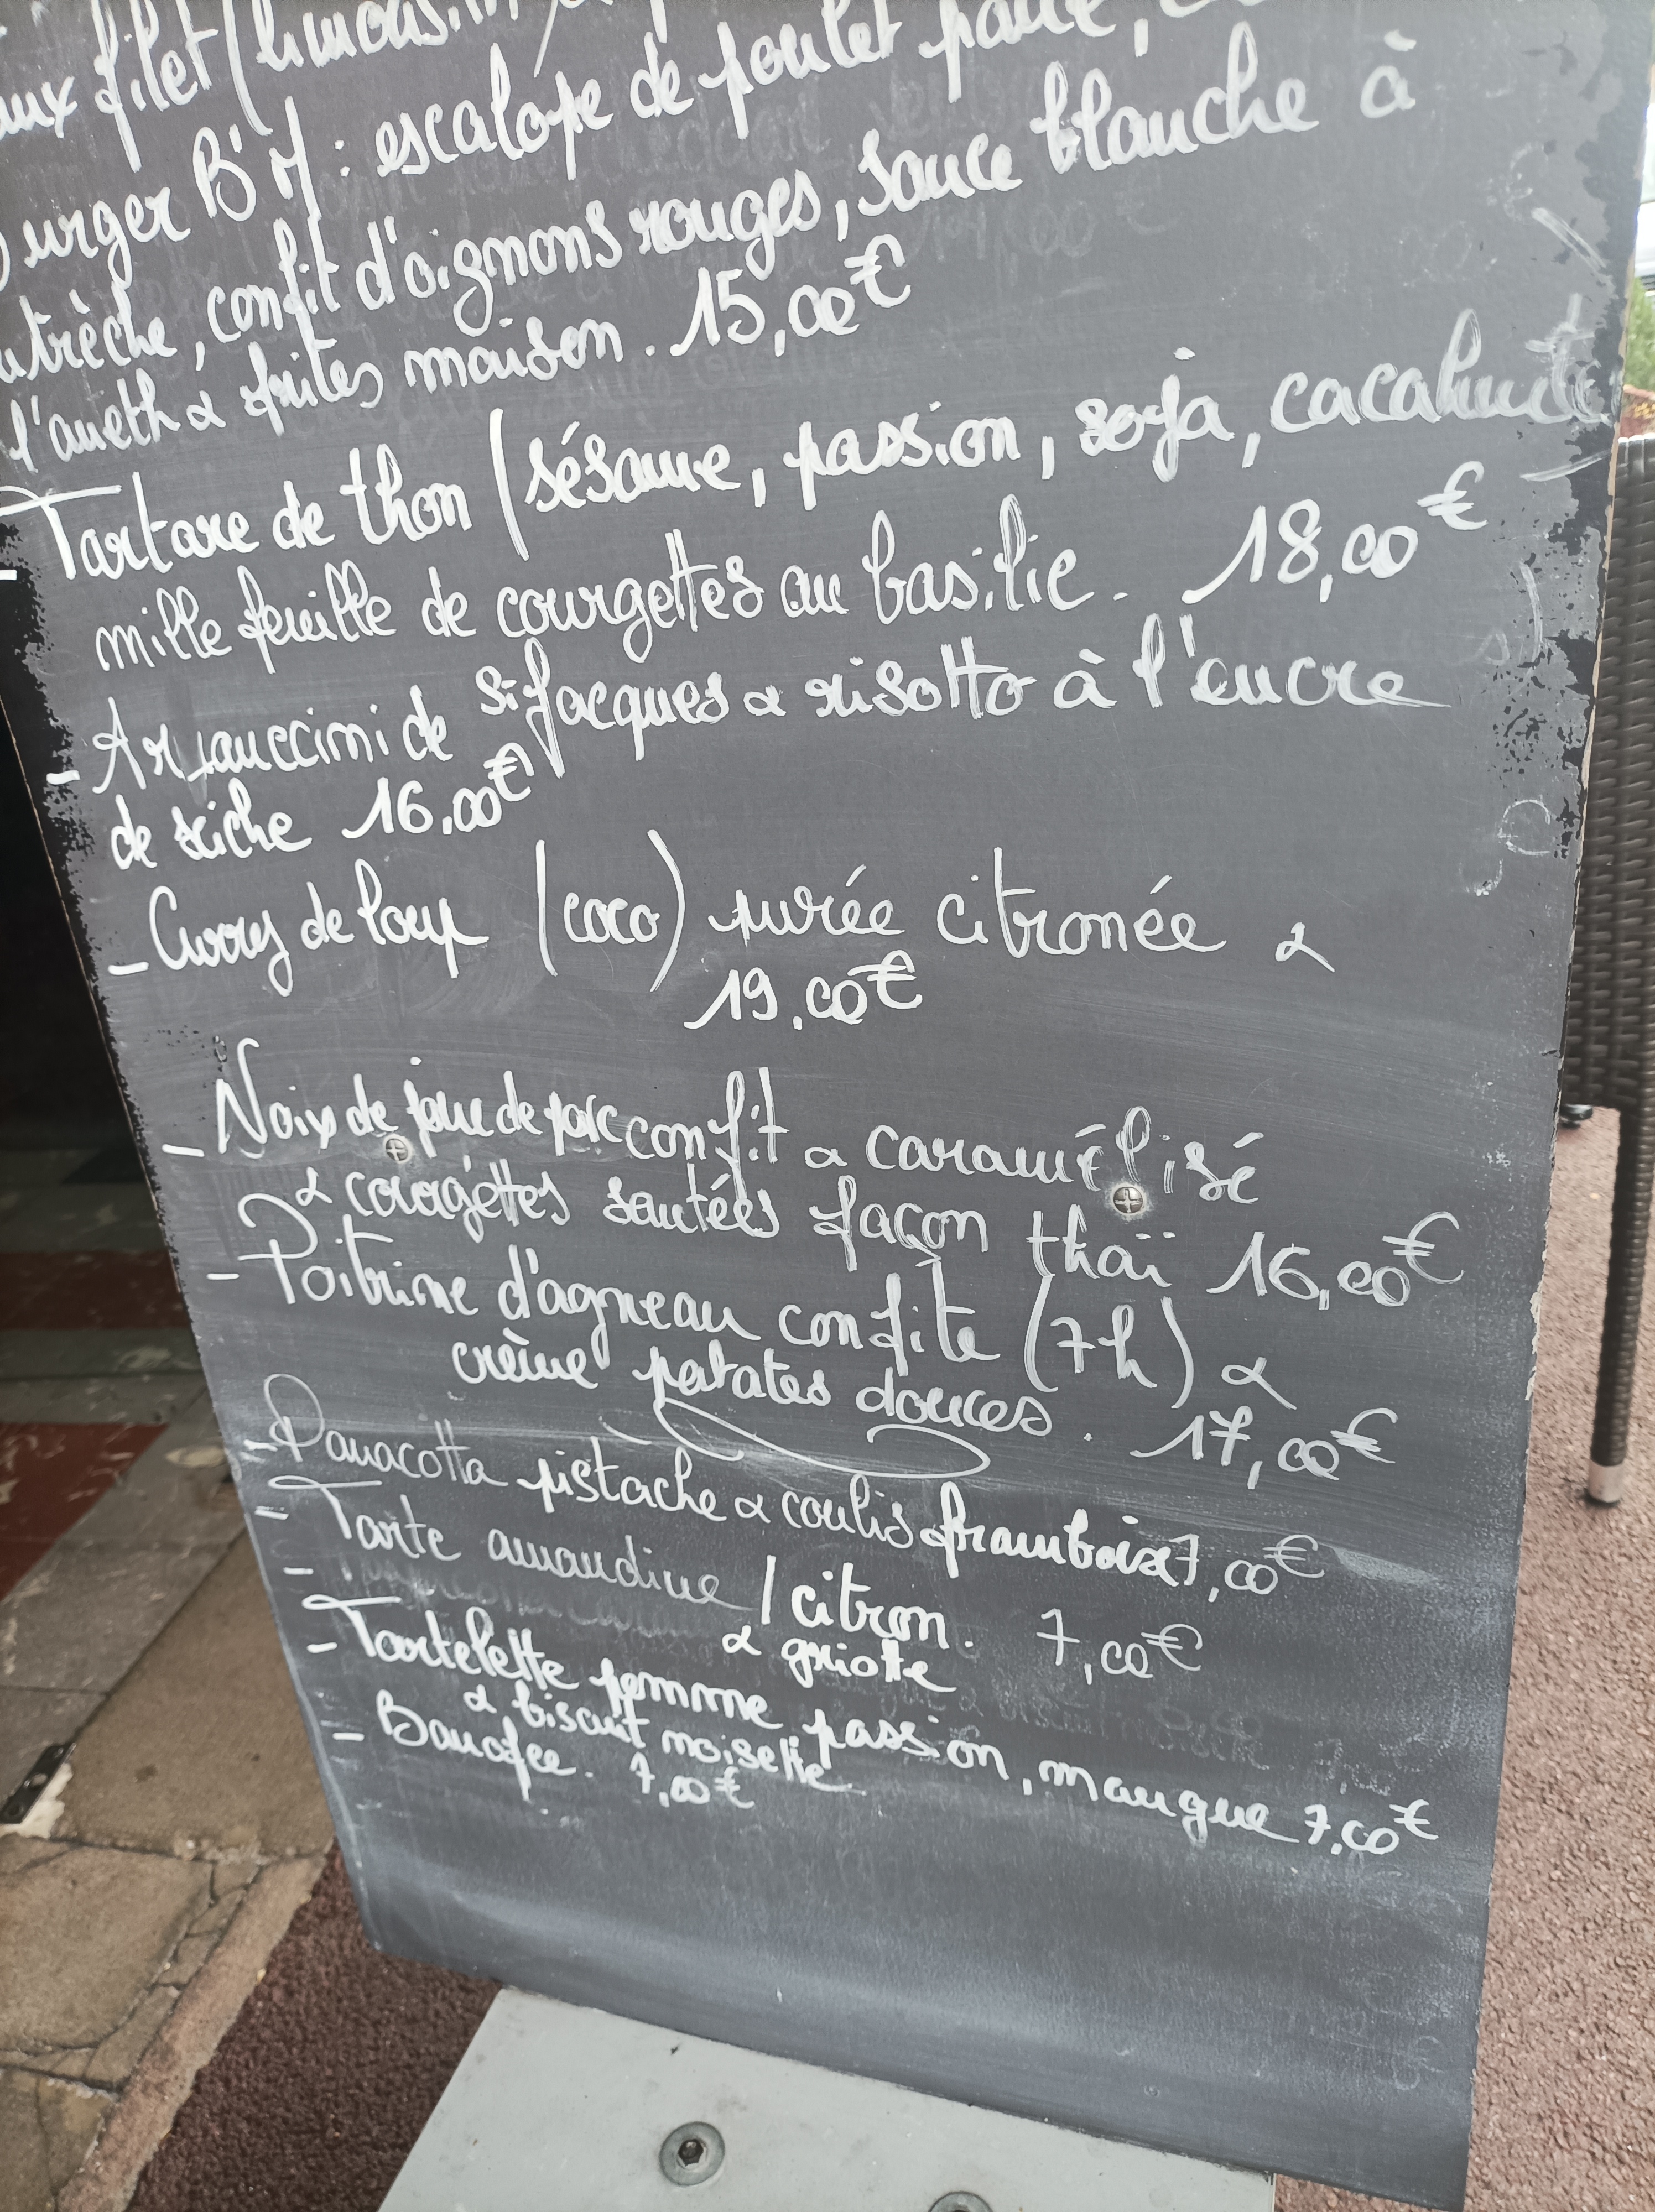 filet (limousin)
Burger B'M : escalope de poulet pané,
confit d'oignons rouges, sauce blanche à
l'aneth & frites maison. 15,00€
- Tartare de thon (sésame, passion, soja, cacahuète
mille feuille de courgettes au basilic. 18,00€
- de St Jacques & risotto à l'encre
de seiche 16.00€
- Curry de loup (coco) purée citronée &
19.00€
- Noix de joue de porc confit & caramélisé
& courgettes sautées façon thaï 16,00€
- Poitrine d'agneau confite (7h) &
crème patates douces. 17,00€
- Panacotta pistache & coulis framboise 7,00€
- Tarte amandine / citron. 7,00€
-
& griotte
- Tartelette pomme passion, mangue 7.00€
& biscuit noisette
- Banofee. 7,00€